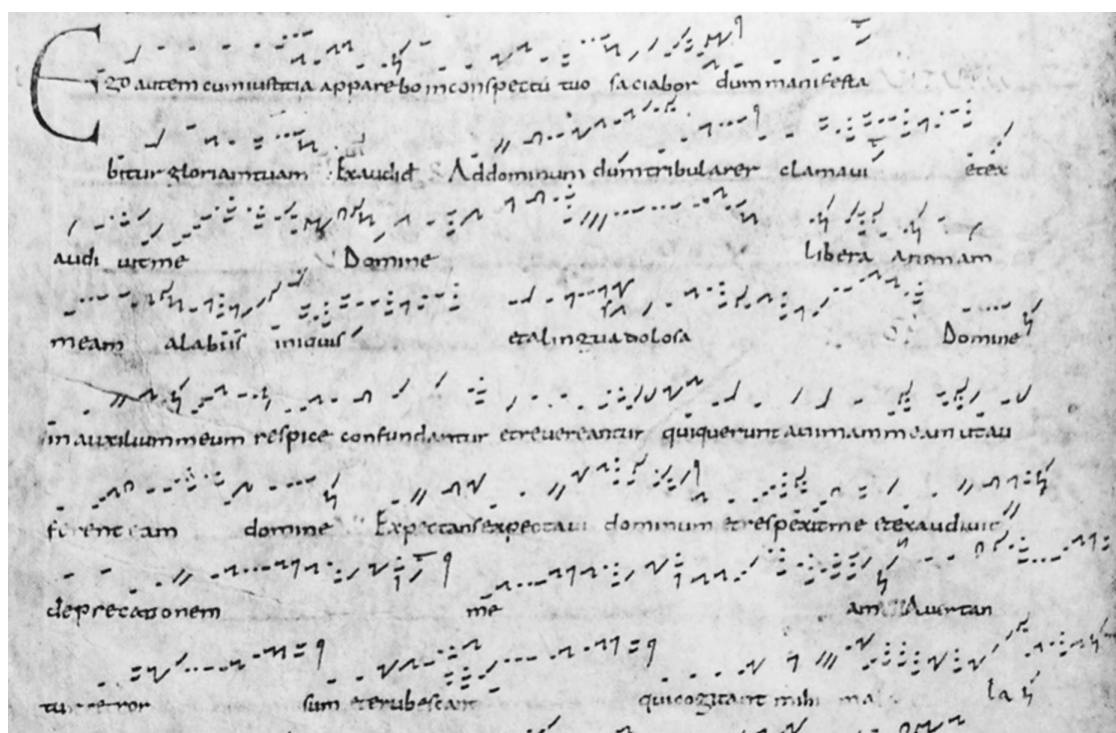 Ego autem cum iustitia apparebo in conspectu tuo saciabor dum manifesta
bitur gloria tuam Exaudi d Ad dominum dum tribularer clamavi et ex
audi vit me Domine libera animam
meam a labiis iniquis et a lingua dolosa Domine
in auxilium meum respice confundantur et revereantur qui querunt animam meam ut au
ferent eam domine Expectans expectavi dominum et respexit me et exaudivit
deprecationem me am Avertan
tur retror sum et erubescant qui cogitant mihi mal la